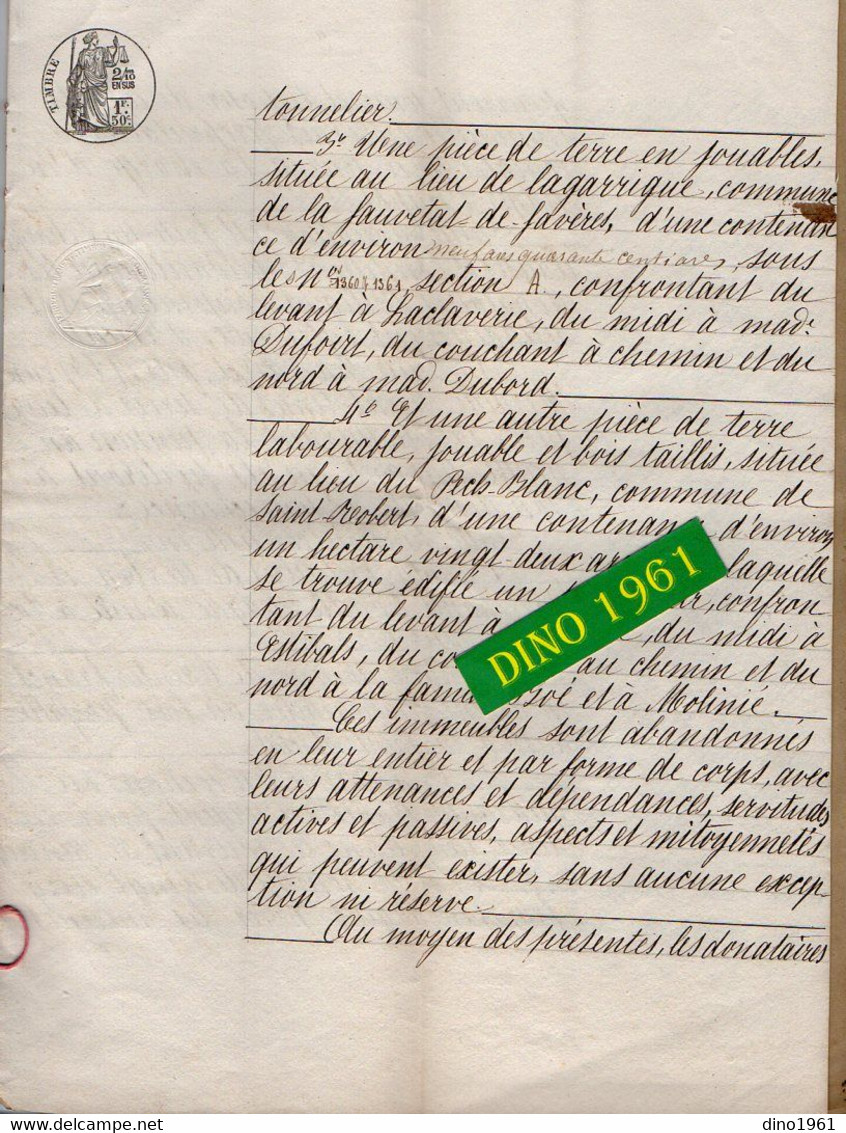 TIMBRE
2/10
EN SUS
1F.
50c.
tonnelier.
3º Une pièce de terre en jouables,
située au lieu de lagarrigue, commune
de la Sauvetat-de-Savères, d'une contenan
ce d'environ neuf ares quarante centiares, sous
les Nos 1360 & 1361, section A, confrontant du
levant à Laclaverie, du midi à mad.
Dufoirt, du couchant à chemin et du
nord à mad. Dubord.
4º Et une autre pièce de terre
labourable, jouable et bois taillis, située
au lieu du Pech-Blanc, commune de
Saint-Robert, d'une contenance d'environ
un hectare vingt-deux laquelle
se trouve édifié un confron
tant du levant à , du midi à
Estibals, du au chemin et du
nord à la et à Molinié.
DINO 1961
Ces immeubles sont abandonnés
en leur entier et par forme de corps, avec
leurs attenances et dépendances, servitudes
actives et passives, aspects et mitoyennetés
qui peuvent exister, sans aucune excep-
tion ni réserve.
Au moyen des présentes, les donataires
© delcampe.net
dino1961